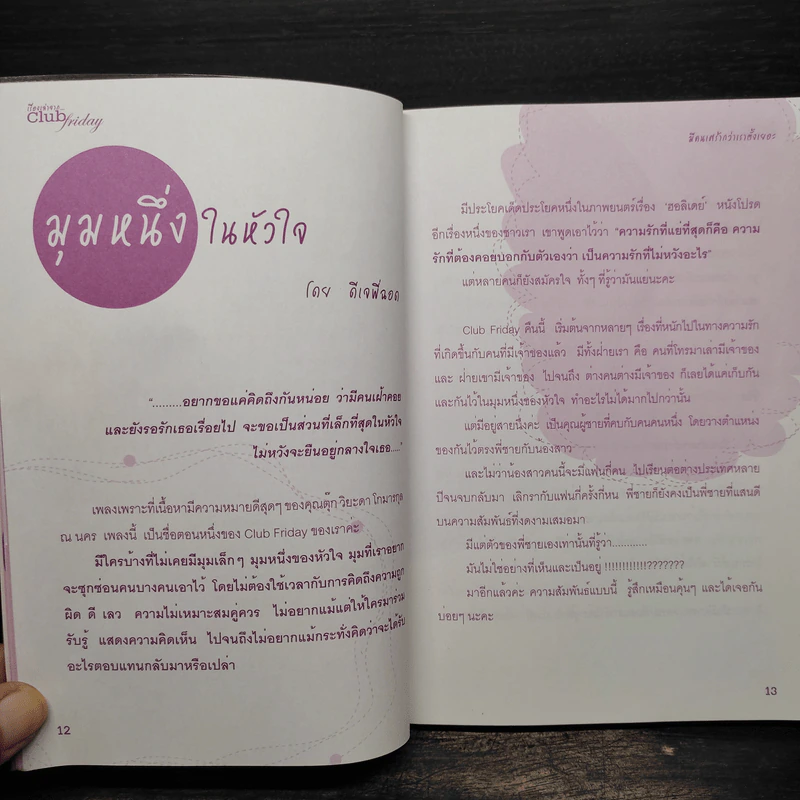 เรื่องเล่าจาก...
Club friday
มุมหนึ่ง ในหัวใจ
โดย ดีเจพี่ฉอด
“.........อยากขอแค่คิดถึงกันหน่อย ว่ามีคนเฝ้าคอย
และยังรอรักเธอเรื่อยไป จะขอเป็นส่วนที่เล็กที่สุดในหัวใจ
ไม่หวังจะยืนอยู่กลางใจเธอ.....”
เพลงเพราะที่เนื้อหามีความหมายดีสุดๆ ของคุณตุ๊ก วิยะดา โกมารกุล
ณ นคร เพลงนี้ เป็นชื่อตอนหนึ่งของ Club Friday ของเราค่ะ
มีใครบ้างที่ไม่เคยมีมุมเล็กๆ มุมหนึ่งของหัวใจ มุมที่เราอยาก
จะซุกซ่อนคนบางคนเอาไว้ โดยไม่ต้องใช้เวลากับการคิดถึงความถูก
ผิด ดี เลว ความไม่เหมาะสมคู่ควร ไม่อยากแม้แต่ให้ใครมาร่วม
รับรู้ แสดงความคิดเห็น ไปจนถึงไม่อยากแม้กระทั่งคิดว่าจะได้รับ
อะไรตอบแทนกลับมาหรือเปล่า
12
มีคนเศร้ากว่าเราตั้งเยอะ
มีประโยคเด็ดประโยคหนึ่งในภาพยนตร์เรื่อง ‘ฮอลิเดย์’ หนังโปรด
อีกเรื่องหนึ่งของชาวเรา เขาพูดเอาไว้ว่า “ความรักที่แย่ที่สุดก็คือ ความ
รักที่ต้องคอยบอกกับตัวเองว่า เป็นความรักที่ไม่หวังอะไร”
แต่หลายคนก็ยังสมัครใจ ทั้งๆ ที่รู้ว่ามันแย่นะคะ
Club Friday คืนนี้ เริ่มต้นจากหลายๆ เรื่องที่หนักไปในทางความรัก
ที่เกิดขึ้นกับคนที่มีเจ้าของแล้ว มีทั้งฝ่ายเรา คือ คนที่โทรมาเล่ามีเจ้าของ
และ ฝ่ายเขามีเจ้าของ ไปจนถึง ต่างคนต่างมีเจ้าของ ก็เลยได้แค่เก็บกัน
และกันไว้ในมุมหนึ่งของหัวใจ ทำอะไรไม่ได้มากไปกว่านั้น
แต่มีอยู่สายนึงค่ะ เป็นคุณผู้ชายที่คบกับคนคนหนึ่ง โดยวางตำแหน่ง
ของกันไว้ตรงพี่ชายกับน้องสาว
และไม่ว่าน้องสาวคนนี้จะมีแฟนกี่คน ไปเรียนต่อต่างประเทศหลาย
ปีจนจบกลับมา เลิกรากับแฟนกี่ครั้งกี่หน พี่ชายก็ยังคงเป็นพี่ชายที่แสนดี
บนความสัมพันธ์ที่งดงามเสมอมา
มีแต่ตัวของพี่ชายเองเท่านั้นที่รู้ว่า...........
มันไม่ใช่อย่างที่เห็นและเป็นอยู่ !!!!!!!!!!!!???????
มาอีกแล้วค่ะ ความสัมพันธ์แบบนี้ รู้สึกเหมือนคุ้นๆ และได้เจอกัน
บ่อยๆ นะคะ
13